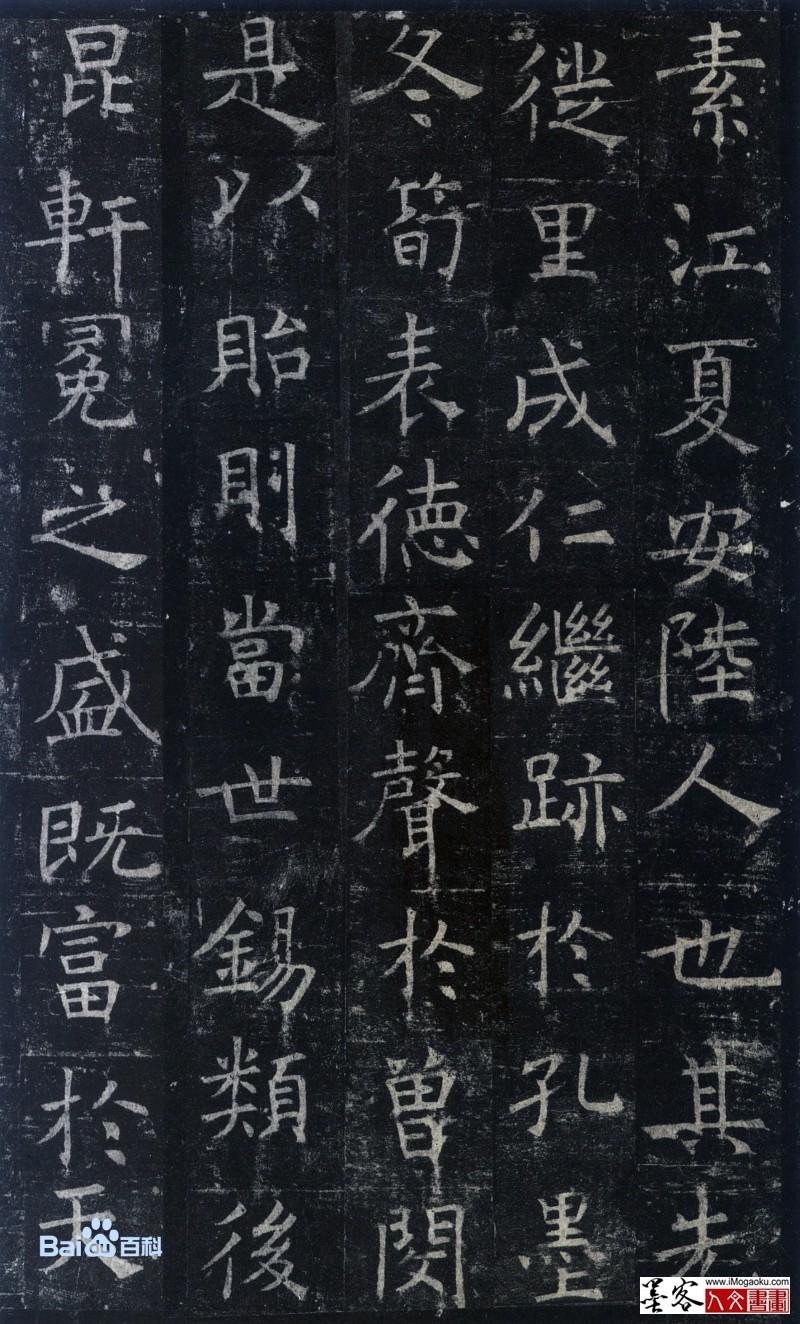 素江夏安陸人也其先
徙里成仁繼跡於孔墨
冬筍表德齊聲於曾閔
是以貽則當世錫類後
昆軒冕之盛既富於天
Bai百科
www.iMogaoku.com
墨客人文書畫